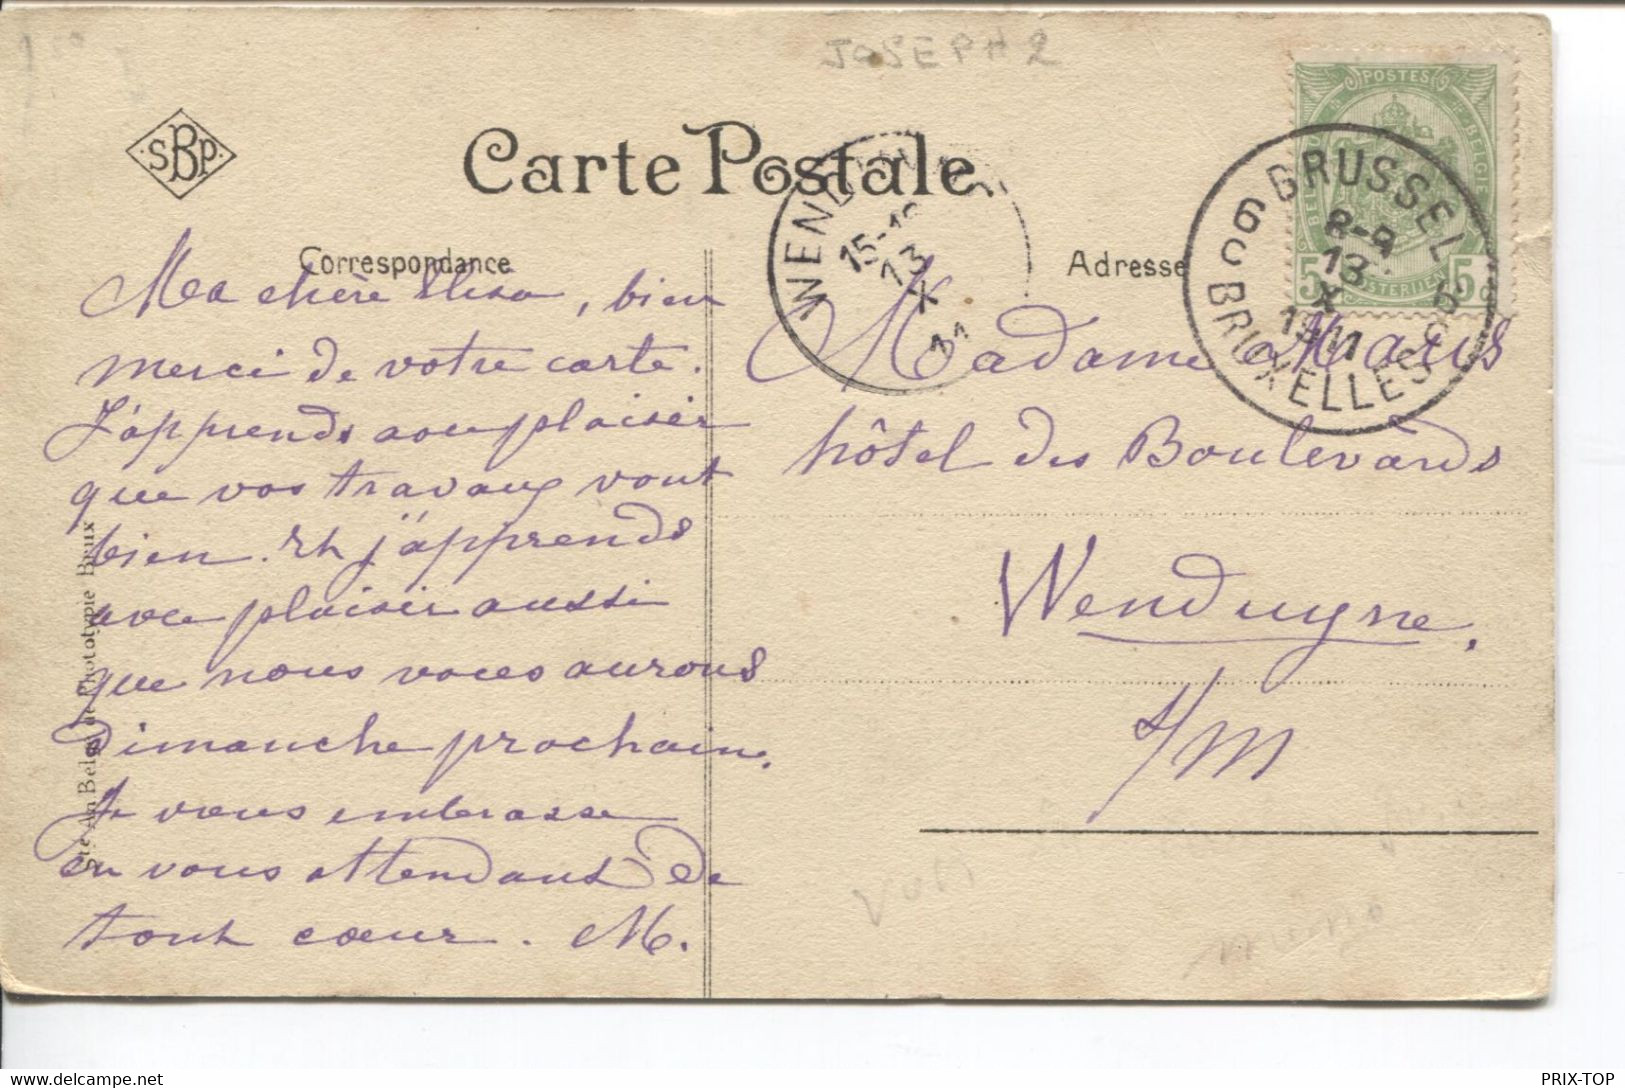 JOSEPH 2
SBP
Carte Postale
POSTES
BELGIE
5 5c
BRUSSEL
6 6
8-9
13
X
1911
BRUXELLES
WENDUYNE
15-1
13
X
11
Correspondance
Adresse
Ma chère Elisa, bien
merci de votre carte.
J'apprends avec plaisir
que vos travaux vont
bien. Et j'apprends
avec plaisir aussi
que nous vous aurons
Dimanche prochain.
Je vous embrasse
en vous attendant de
tout cœur. M.
Madame Maris
hôtel des Boulevards
Wenduyne.
s/M
Sté An Belge de Phototypie Brux
PRIX-TOP